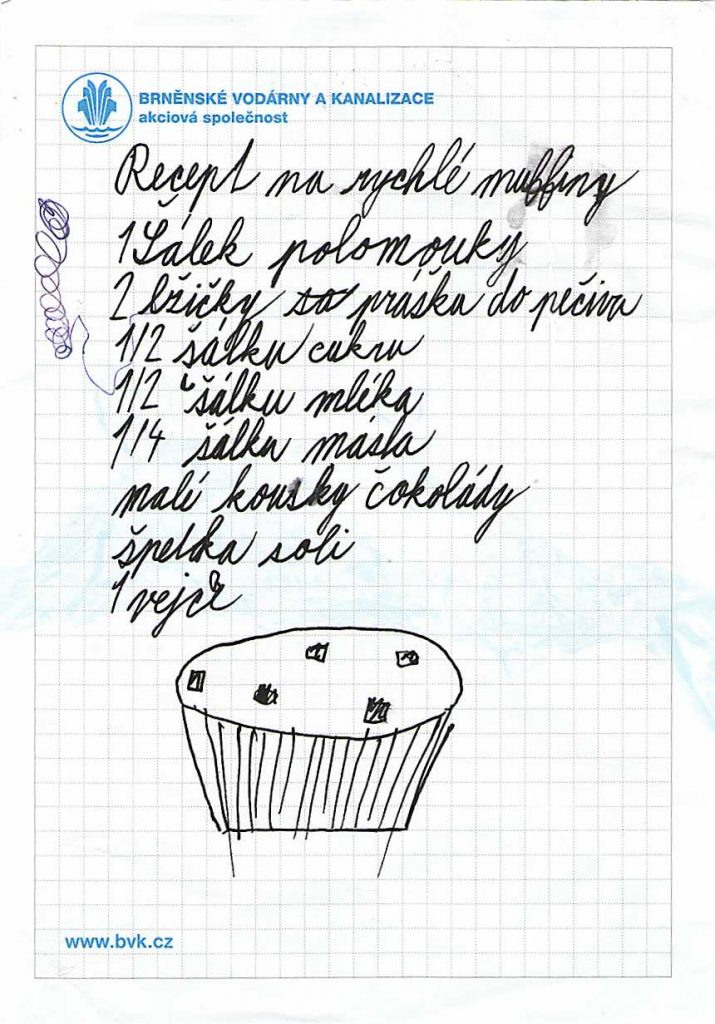 BRNĚNSKÉ VODÁRNY A KANALIZACE
akciová společnost
Recept na rychlé muffiny
1 Šálek polomouky
2 lžičky prášku do pečiva
1/2 šálku cukru
1/2 šálku mléka
1/4 šálku másla
malé kousky čokolády
špetka soli
1 vejce
www.bvk.cz